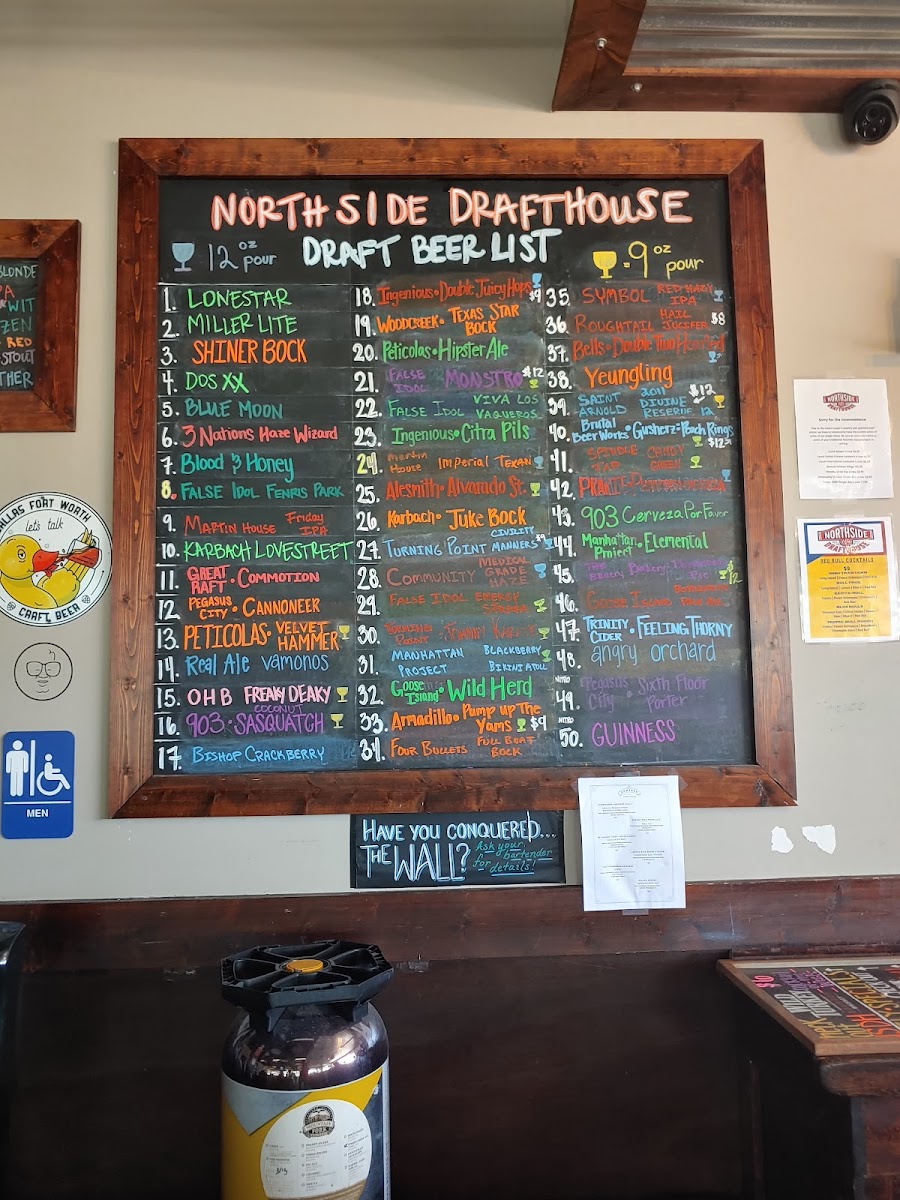 NORTHSIDE DRAFTHOUSE
DRAFT BEER LIST
12 oz pour
= 9 oz pour
1. LONESTAR
2. MILLER LITE
3. SHINER BOCK
4. DOS XX
5. BLUE MOON
6. 3 Nations Haze Wizard
7. Blood & Honey
8. FALSE IDOL FENRIS PARK
9. MARTIN HOUSE Friday IPA
10. KARBACH LOVESTREET
11. GREAT RAFT • COMMOTION
12 PEGASUS CITY • CANNONEER
13. PETICOLAS • VELVET HAMMER
14. Real Ale Vamonos
15. OHB FREAKY DEAKY
16. 903 • COCONUT SASQUATCH
17. BISHOP CRACKBERRY
18. Ingenious • Double Juicy Hops $9
19. WOODCREEK • TEXAS STAR BOCK
20. Peticolas • Hipster Ale
21. FALSE IDOL MONSTRO $12
22. FALSE IDOL VIVA LOS VAQUEROS
23. Ingenious • Citra Pils
24. Martin House Imperial Texan
25. Alesmith • Alvarado St.
26. Karbach • JUKE BOCK
27. TURNING POINT CIVILITY MANNERS $9
28. COMMUNITY MEDICAL GRADE HAZE
29. FALSE IDOL
30.
31. MANHATTAN PROJECT BLACKBERRY BIKINI ATOLL
32. Goose Island • Wild Herd
33. Armadillo • Pump up The Yams $9
34. FOUR BULLETS FULL BOAT BOCK
35. SYMBOL RED HAZY IPA
36. ROUGHTAIL HAIL JUCIFER $8
37. Bells • Double Two Hearted
38. Yeungling
39. SAINT ARNOLD 2011 DIVINE RESERVE 12 $12
40. Brutal Beer Works • Gusherz • Peach Rings $12
41. SPINDLE TAP CANDY GREEN
42.
43. 903 Cerveza Por Favor
44. Manhattan Project • Elemental
45.
46. GOOSE ISLAND
47. TRINITY CIDER • FEELING THORNY
48. angry orchard
NITRO
49. Pegasus City Sixth Floor Porter
NITRO
50. GUINNESS
HAVE YOU CONQUERED...
THE WALL? Ask your bartender for details!
BLONDE
WIT
ZEN
RED
STOUT
THER
DALLAS FORT WORTH
let's talk
CRAFT BEER
MEN
NORTHSIDE
Sorry for the inconvenience
NORTHSIDE
DRAFT HOUSE
RED BULL COCKTAILS
$9